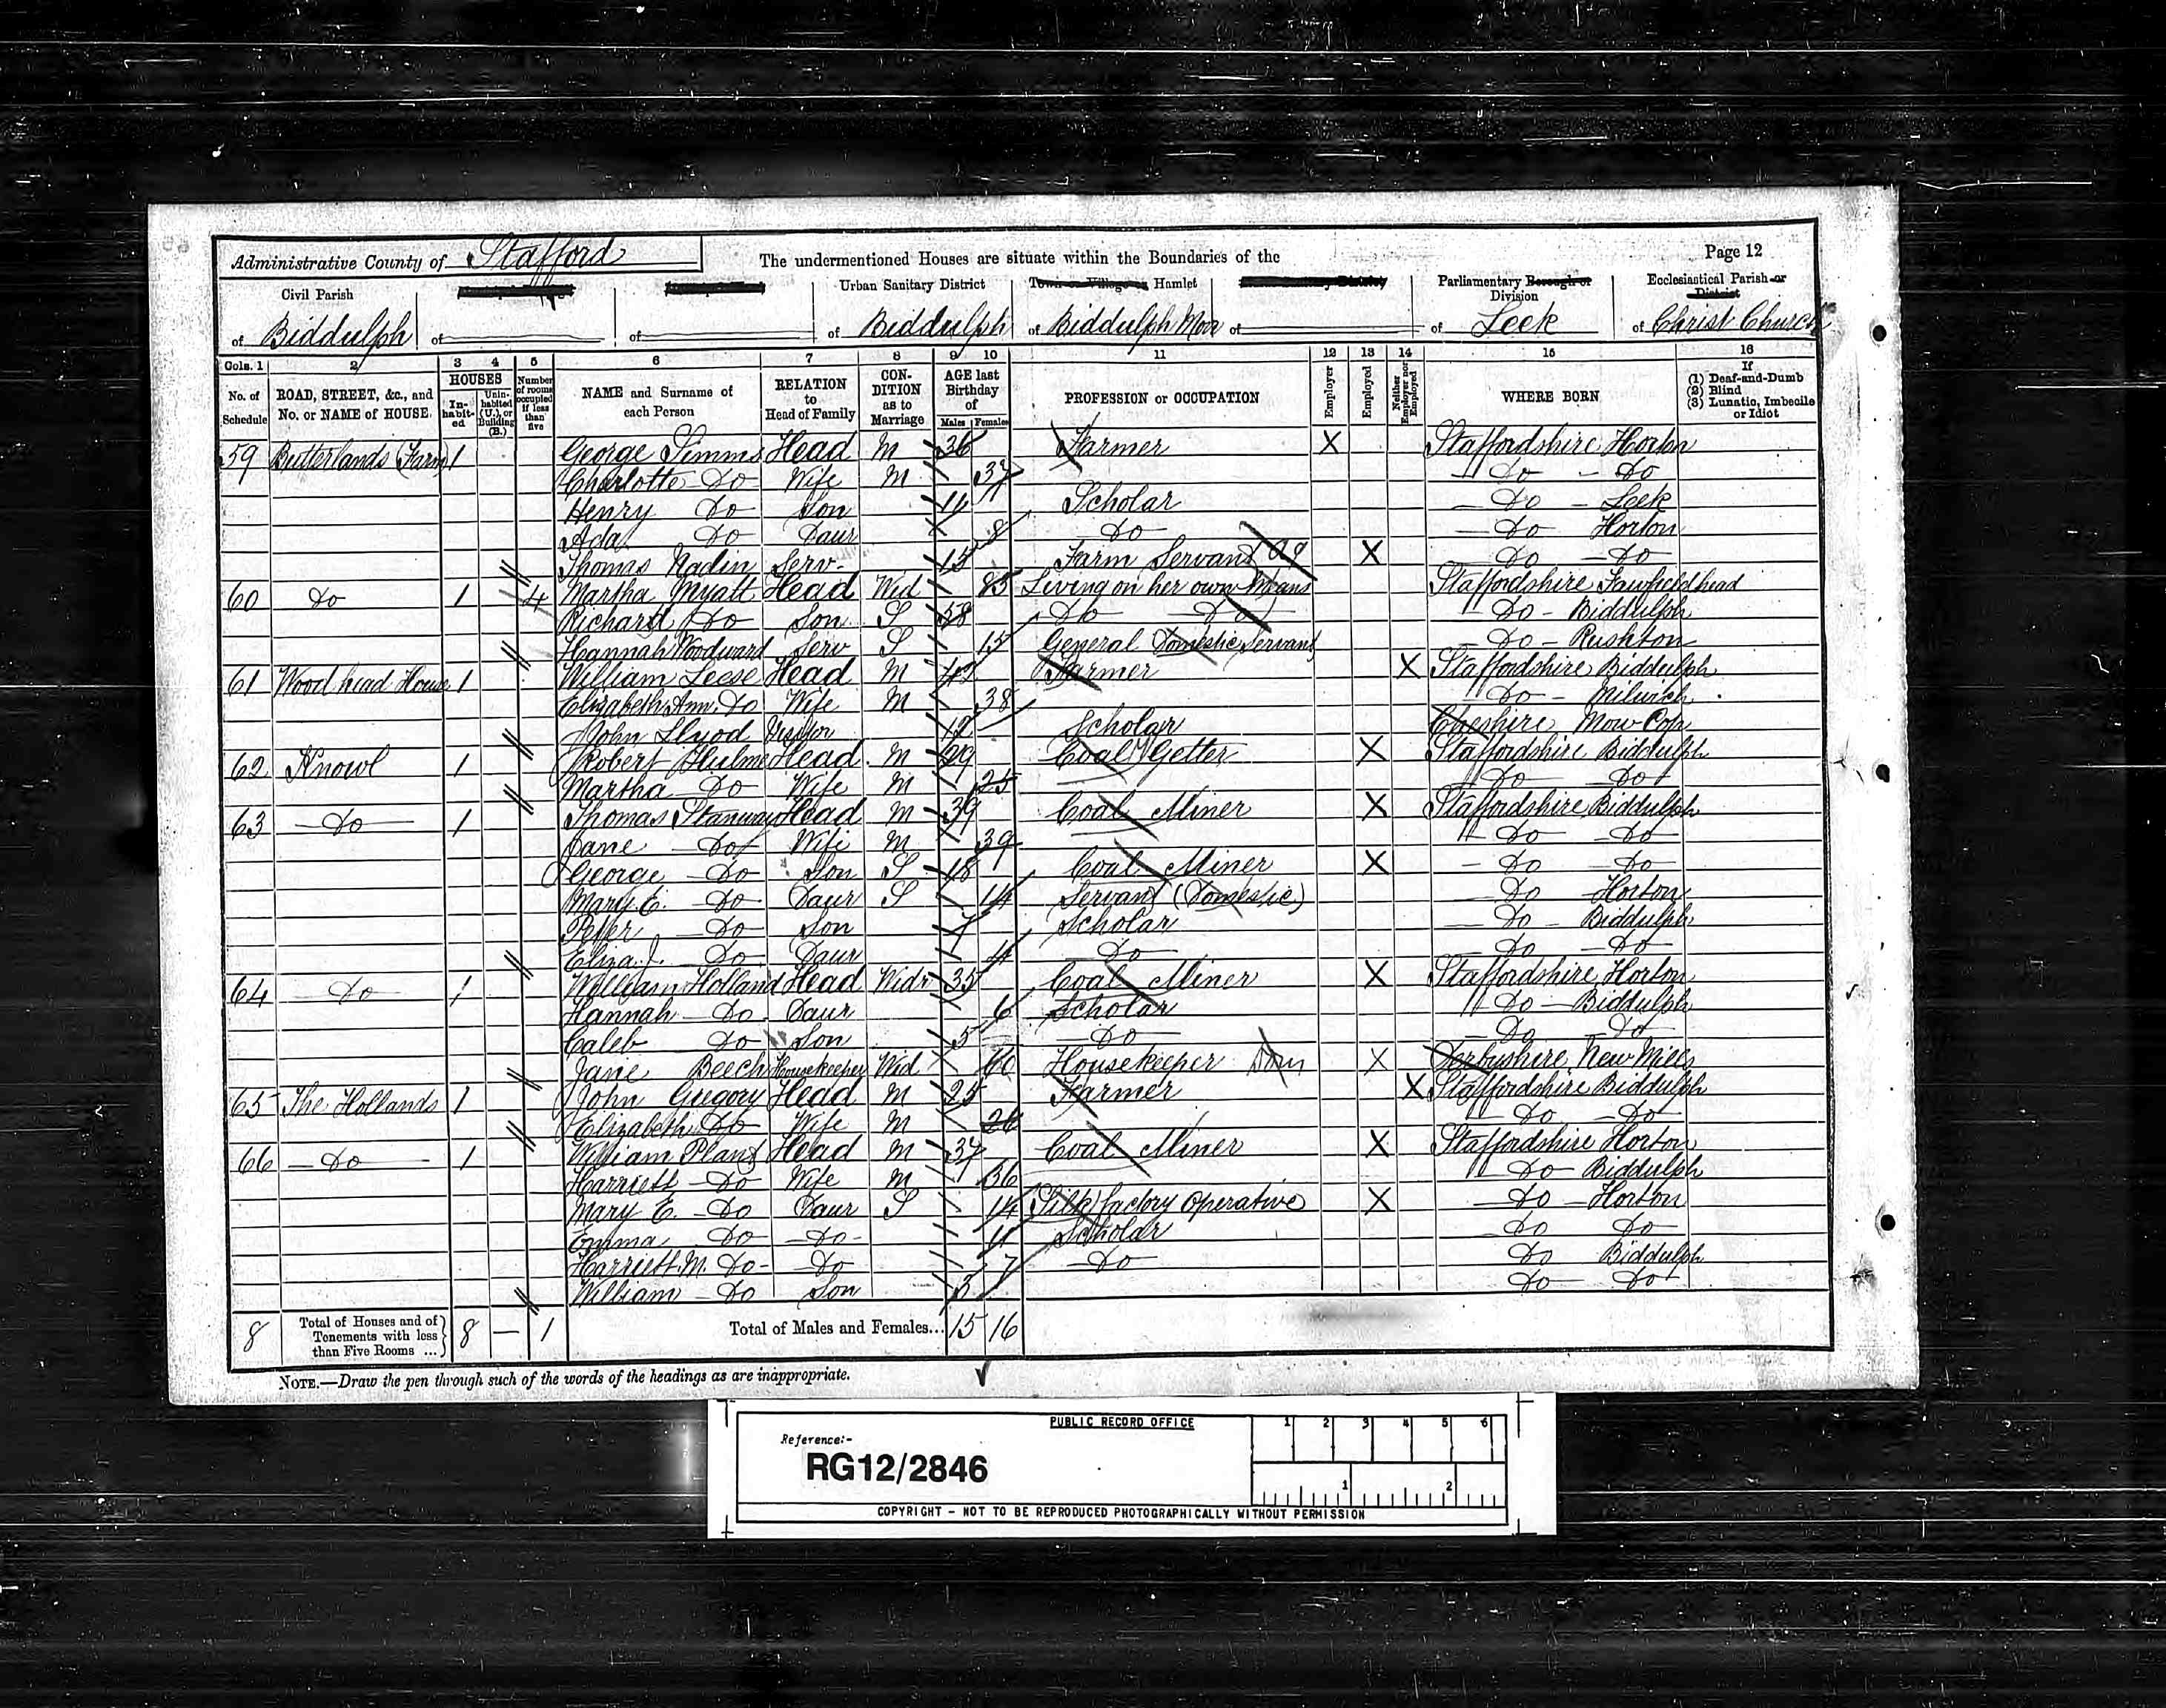 Administrative County of Stafford
The undermentioned Houses are situate within the Boundaries of the
Page 12
Civil Parish of Biddulph
of
of
Urban Sanitary District of Biddulph
Town or Village or Hamlet of Biddulph Moor
of
Parliamentary Borough or Division of Leek
Ecclesiastical Parish or District of Christ Church
Cols. 1 2 3 4 5 6 7 8 9 10 11 12 13 14 15 16
No. of Schedule
ROAD, STREET, &c., and No. or NAME of HOUSE
HOUSES
Inhabited
Uninhabited (U.), or Building (B.)
Number of rooms occupied if less than five
NAME and Surname of each Person
RELATION to Head of Family
CONDITION as to Marriage
AGE last Birthday of
Males Females
PROFESSION or OCCUPATION
Employer
Employed
Neither Employer nor Employed
WHERE BORN
If (1) Deaf-and-Dumb (2) Blind (3) Lunatic, Imbecile or Idiot
59 Butterlands (Farm) 1 George Simms Head M 36 Farmer X Staffordshire Horton
Charlotte Do Wife M 37 Do Do
Henry Do Son 14 Scholar Do Leek
Ada Do Daur 8 Do Do Horton
Thomas Nadin Serv 15 Farm Servant Ag X Do Do
60 Do 1 4 Martha Myatt Head Wid 85 Living on her own Means Staffordshire Fawfieldhead
Richard Do Son S 58 Do Do Do Biddulph
Hannah Woodward Serv S 15 General Domestic Servant Do Rushton
61 Wood head House 1 William Leese Head M 42 Farmer X Staffordshire Biddulph
Elizabeth Ann Do Wife M 38 Do Milwich
John Lluod Visitor 12 Scholar Cheshire Mow Cop
62 Knowl 1 Robert Hulme Head M 29 Coal Getter X Staffordshire Biddulph
Martha Do Wife M 25 Do Do
63 Do 1 Thomas Stanway Head M 39 Coal Miner X Staffordshire Biddulph
Jane Do Wife M 39 Do Do
George Do Son S 18 Coal Miner X Do Do
Mary E. Do Daur S 14 Servant (Domestic) Do Horton
Peter Do Son 7 Scholar Do Biddulph
Eliza J. Do Daur 4 Do Do Do
64 Do 1 William Holland Head Widr 35 Coal Miner X Staffordshire Horton
Hannah Do Daur 6 Scholar Do Biddulph
Caleb Do Son 5 Do Do Do
Jane Beech Housekeeper Wid 60 Housekeeper Dom X Derbyshire New Mills
65 The Hollands 1 John Gregory Head M 25 Farmer X Staffordshire Biddulph
Elizabeth Do Wife M 26 Do Do
66 Do 1 William Plant Head M 37 Coal Miner X Staffordshire Horton
Harriett Do Wife M 36 Do Biddulph
Mary E. Do Daur S 14 Silk factory Operative X Do Horton
Emma Do Do 11 Scholar Do Do
Harriett M. Do Do 7 Do Do Biddulph
William Do Son 3 Do Do
8 Total of Houses and of Tenements with less than Five Rooms ... 8 — 1 Total of Males and Females... 15 16
NOTE.—Draw the pen through such of the words of the headings as are inappropriate.
PUBLIC RECORD OFFICE
1 2 3 4 5 6
Reference:-
RG12/2846
1 2
COPYRIGHT - NOT TO BE REPRODUCED PHOTOGRAPHICALLY WITHOUT PERMISSION